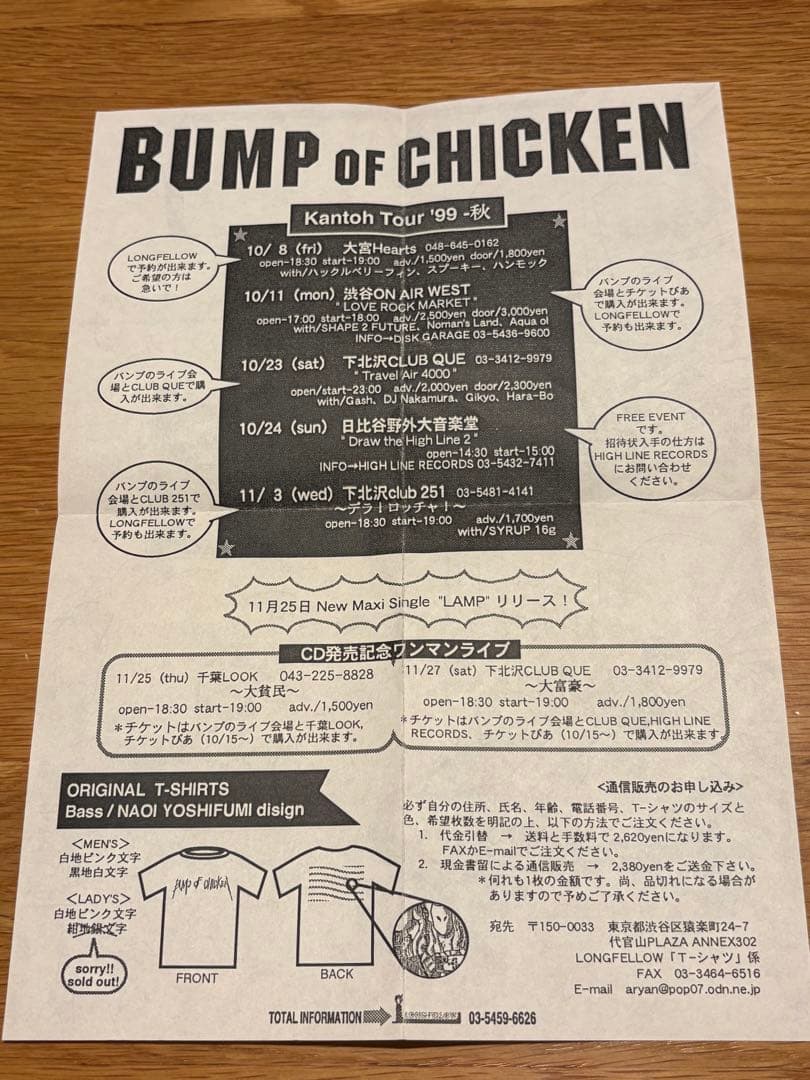 BUMP OF CHICKEN
Kantoh Tour '99 -秋
LONGFELLOW
で予約が出来ます。
ご希望の方は
急いで！
10/ 8（fri） 大宮Hearts 048-645-0162
open-18:30 start-19:00 adv./1,500yen door/1,800yen
with/ハックルベリーフィン、スプーキー、ハンモック
10/11（mon）渋谷ON AIR WEST
"LOVE ROCK MARKET"
open-17:00 start-18:00 adv./2,500yen door/3,000yen
with/SHAPE 2 FUTURE、Noman's Land、Aqua oi
INFO→DISK GARAGE 03-5436-9600
バンプのライブ
会場とチケットぴあ
で購入が出来ます。
LONGFELLOWで
予約も出来ます。
10/23（sat） 下北沢CLUB QUE 03-3412-9979
"Travel Air 4000"
open/start-23:00 adv./2,000yen door/2,300yen
with/Gash、DJ Nakamura、Gikyo、Hara-Bo
バンプのライブ会
場とCLUB QUEで購
入が出来ます。
10/24（sun）日比谷野外大音楽堂
"Draw the High Line 2"
open-14:30 start-15:00
INFO→HIGH LINE RECORDS 03-5432-7411
FREE EVENT
です。
招待状入手の仕方は
HIGH LINE RECORDS
にお問い合わせ
ください。
11/ 3（wed）下北沢club 251 03-5481-4141
～デラ！ロッチャ！～
open-18:30 start-19:00 adv./1,700yen
with/SYRUP 16g
バンプのライブ
会場とCLUB 251で
購入が出来ます。
LONGFELLOWで
予約も出来ます。
11月25日 New Maxi Single "LAMP" リリース！
CD発売記念ワンマンライブ
11/25（thu）千葉LOOK 043-225-8828
～大貧民～
open-18:30 start-19:00 adv./1,500yen
＊チケットはバンプのライブ会場と千葉LOOK、
チケットぴあ（10/15～）で購入が出来ます。
11/27（sat）下北沢CLUB QUE 03-3412-9979
～大富豪～
open-18:30 start-19:00 adv./1,800yen
＊チケットはバンプのライブ会場とCLUB QUE,HIGH LINE
RECORDS、チケットぴあ（10/15～）で購入が出来ます。
ORIGINAL T-SHIRTS
Bass / NAOI YOSHIFUMI disign
＜MEN'S＞
白地ピンク文字
黒地白文字
＜LADY'S＞
白地ピンク文字
紺地銀文字
sorry!!
sold out!
bump of chicken
FRONT
BACK
<通信販売のお申し込み>
必ず自分の住所、氏名、年齢、電話番号、T-シャツのサイズと
色、希望枚数を明記の上、以下の方法でご注文ください。
1. 代金引替 → 送料と手数料で 2,620yenになります。
FAXかE-mailでご注文ください。
2. 現金書留による通信販売 → 2,380yenをご送金下さい。
＊何れも1枚の金額です。尚、品切れになる場合が
ありますので予めご了承ください。
宛先 〒150-0033 東京都渋谷区猿楽町24-7
代官山PLAZA ANNEX302
LONGFELLOW「T-シャツ」係
FAX 03-3464-6516
E-mail aryan@pop07.odn.ne.jp
TOTAL INFORMATION LONGFELLOW 03-5459-6626